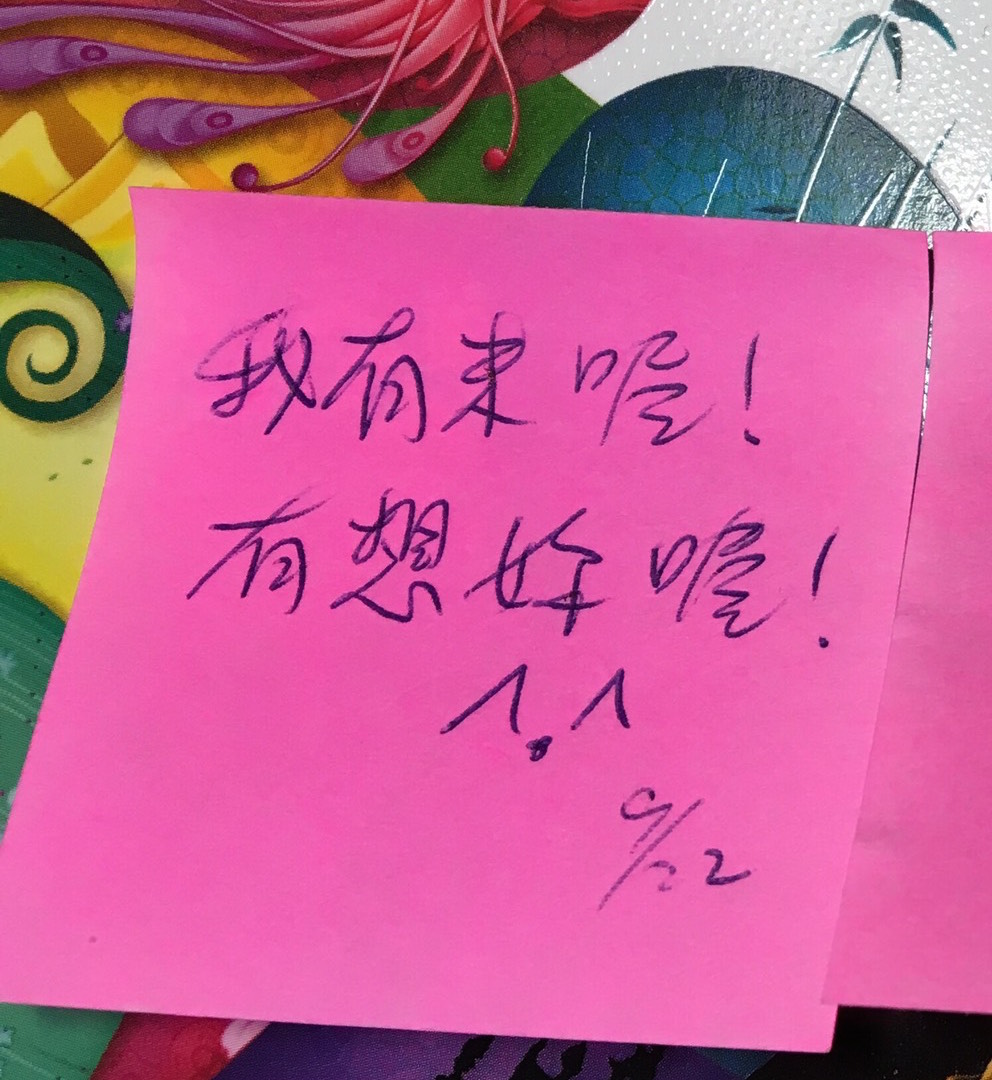 我有来喔!
有想妳喔!
^.^
9/22